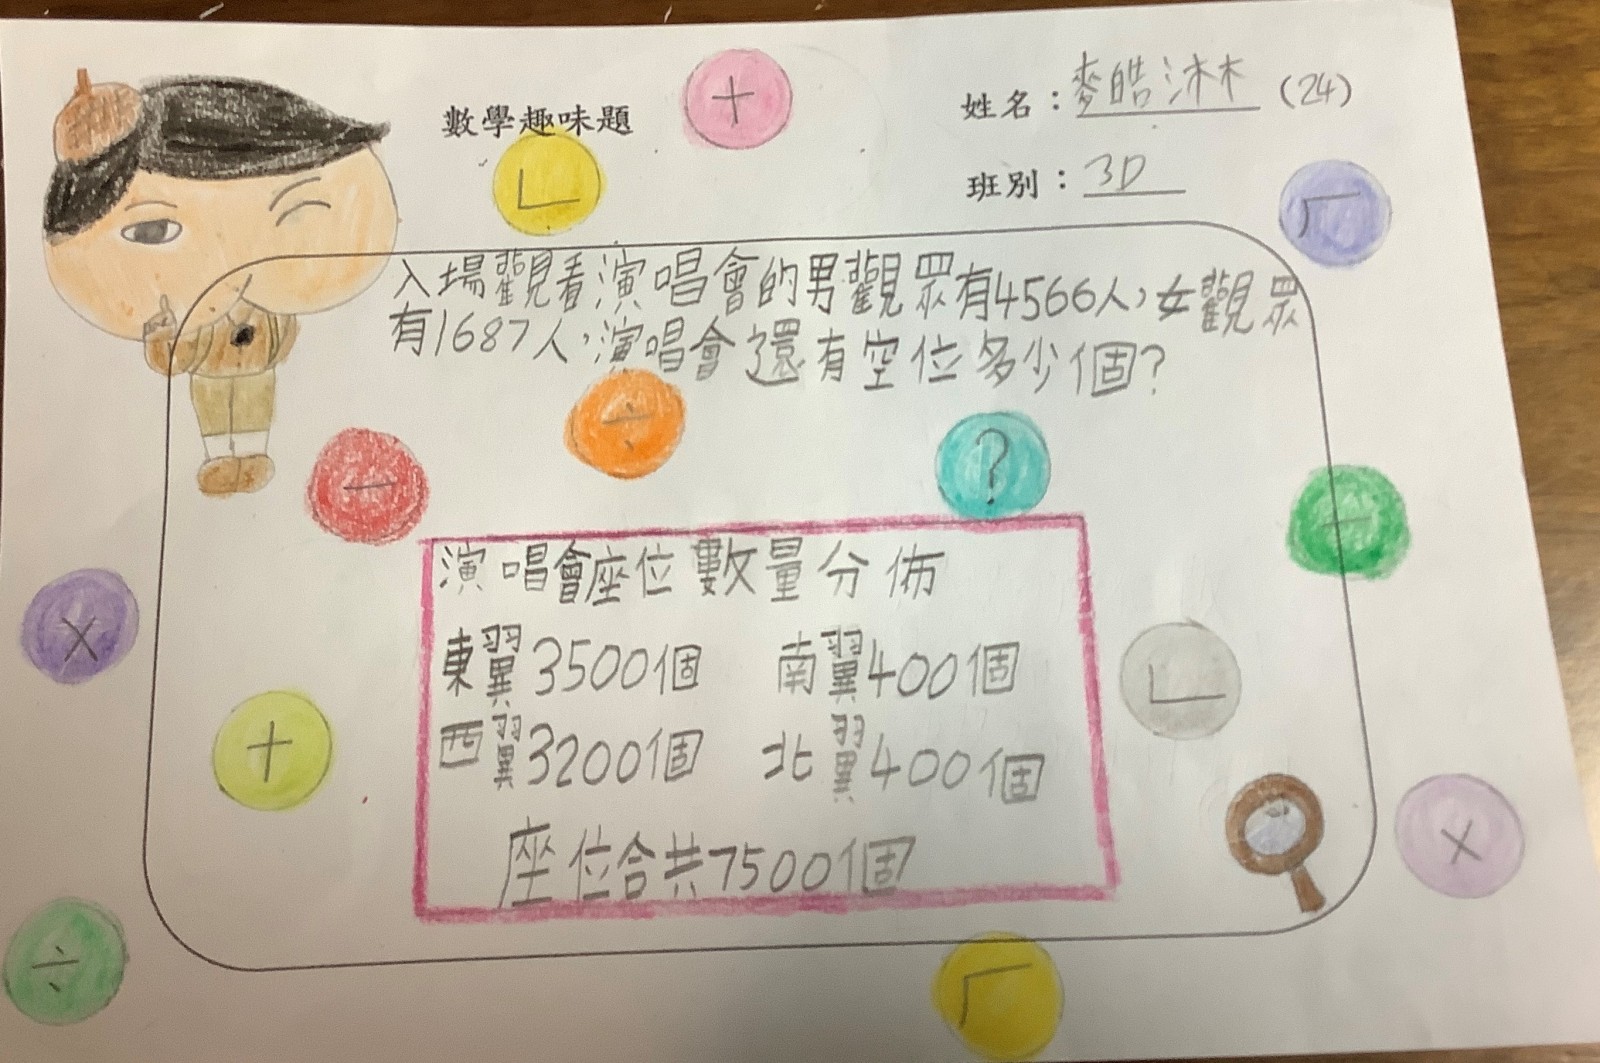 數學趣味題
姓名：麥皓沐(24)
班別：3D
入場觀看演唱會的男觀眾有4566人，女觀眾
有1687人，演唱會還有空位多少個?
演唱會座位數量分佈
東翼3500個 南翼400個
西翼3200個 北翼400個
座位合共7500個
+
÷
−
?
+
×
+
×
÷